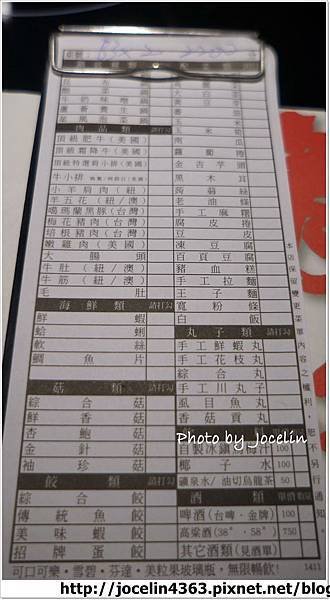 桌號
牛奶味噌鍋
蘆薈養生鍋
星風泡菜鍋
肉品類 請打勾
頂級肥牛(美國)
頂級霜降牛(美國)
頂級特選肩小排(美國)
牛小排
小羊肩肉(紐)
羊五花(紐/澳)
噶瑪蘭黑豚(台灣)
梅花豬肉(台灣)
培根豬肉(台灣)
嫩雞肉(美國)
大腸頭
牛肚(紐/澳)
牛筋(紐/澳)
毛肚
海鮮類 請打勾
鮮蝦
蛤蜊
軟絲
鯛魚片
菇類 請打勾
綜合菇
鮮香菇
杏鮑菇
金針菇
袖珍菇
餃類 請打勾
綜合餃
傳統魚餃
美味蝦餃
招牌蛋餃
玉米筍
南瓜
蘿蔔
金吉芋頭
黑木耳
蒟蒻絲
老油條
手工麻糬
腐皮捲
豆皮
凍豆腐
百頁豆腐
豬血糕
手工拉麵
王子麵
寬粉條
白飯
丸子類 請打勾
手工鮮蝦丸
手工花枝丸
綜合丸
手工川丸子
虱目魚丸
香菇貢丸
自製冰鎮酸梅汁 100
椰子水 100
礦泉水/油切烏龍茶 50
酒類 單酒
啤酒(台啤·金牌) 100
高粱酒(38°·58°) 750
其它酒類(見酒單)
本店保留變更菜單內容之權利,恕不另行通知
可口可樂·雪碧·芬達·美粒果玻璃瓶,無限暢飲!
1411
Photo by Jocelin
http://jocelin4363.pixnet.net/blog